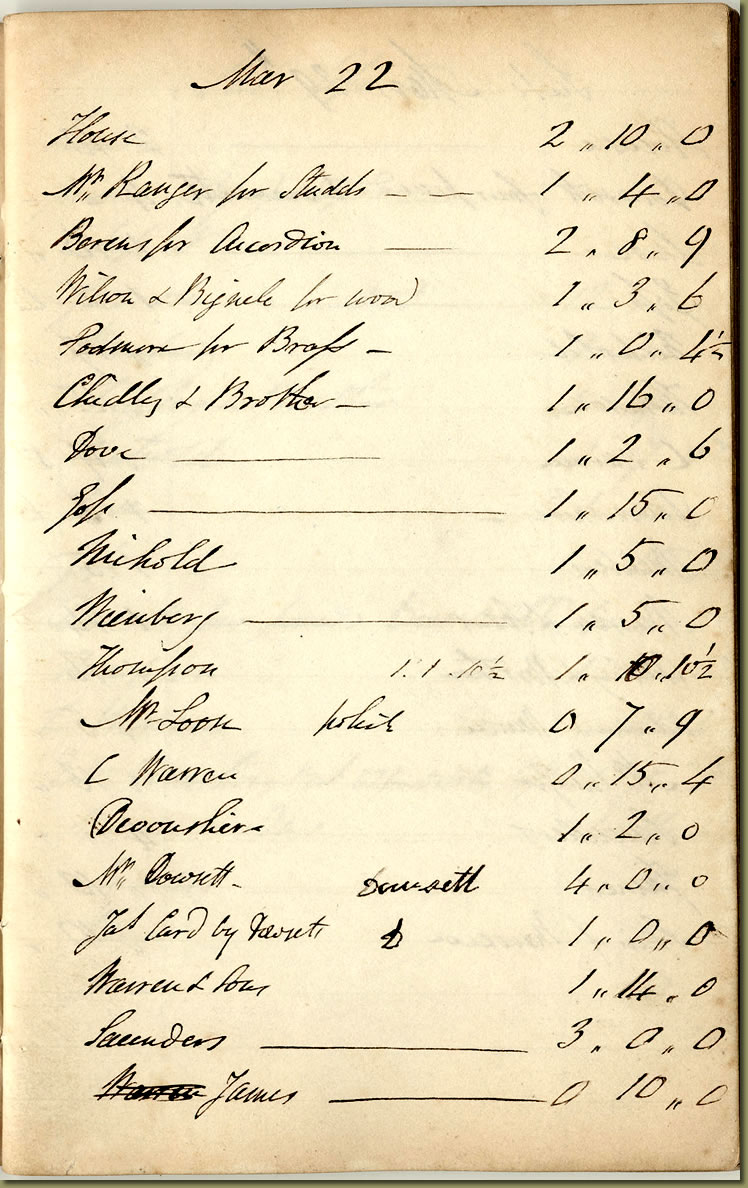 Mar 22
House 2 " 10 " 0
Mr Ranger for Studds — — 1 " 4 " 0
for Accordion — 2 " 8 " 9
Wilson & for wood 1 " 3 " 6
Podmore for Brass — 1 " 0 " 4½
Chidley & Brother — 1 " 16 " 0
Dove — 1 " 2 " 6
— 1 " 15 " 0
1 " 5 " 0
— 1 " 5 " 0
Thompson 1 " 1 " 10½ 1 " 10 " 10½
Mr Loon 0 7 " 9
C Warren 0 " 15 " 4
Devonshire 1 " 2 " 0
Mr Dowsett - Dowsett 4 " 0 " 0
Card by Dowsett 1 " 0 " 0
Warren & Sons 1 " 14 " 0
Saunders — 3 " 0 " 0
Warren James — 0 10 " 0